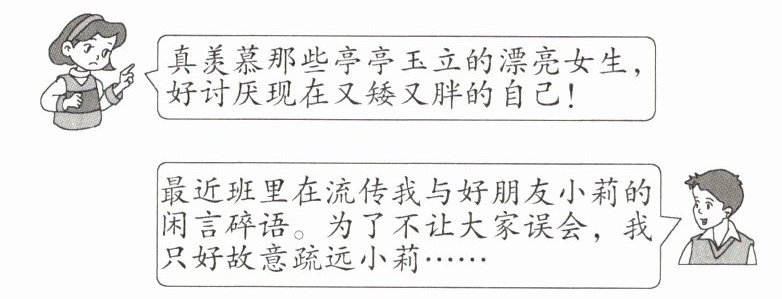 真羡慕那些亭亭玉立的漂亮女生，
好讨厌现在又矮又胖的自己！
最近班里在流传我与好朋友小莉的
闲言碎语。为了不让大家误会，我
只好故意疏远小莉……